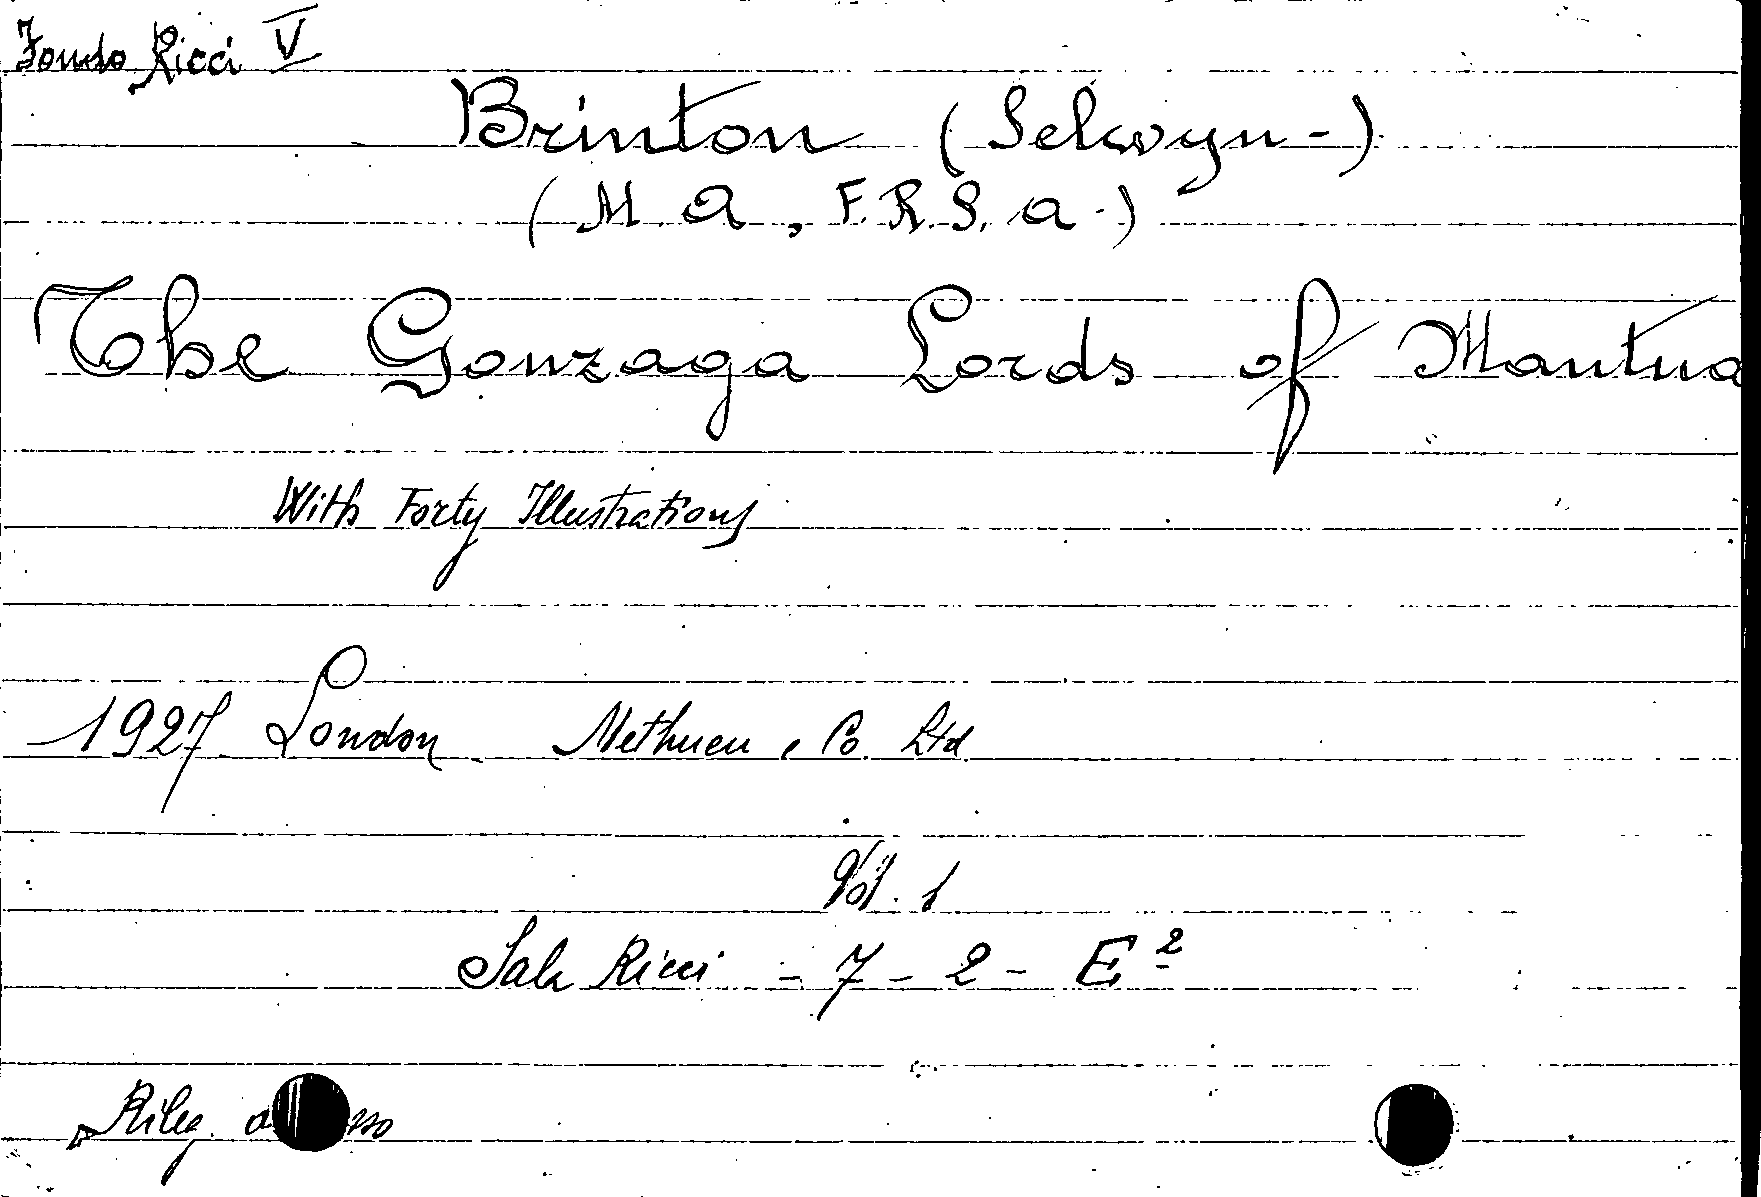 Fondo Ricci V
Brinton (Selwyn-)
(M. A., F.R.S.A.)
The Gonzaga Lords of Mantua
With Forty Illustrations
1927 London Methuen, Co. Ltd.
Vol. 1
Sala Ricci - 7 - 2 - E 2
Rileg.